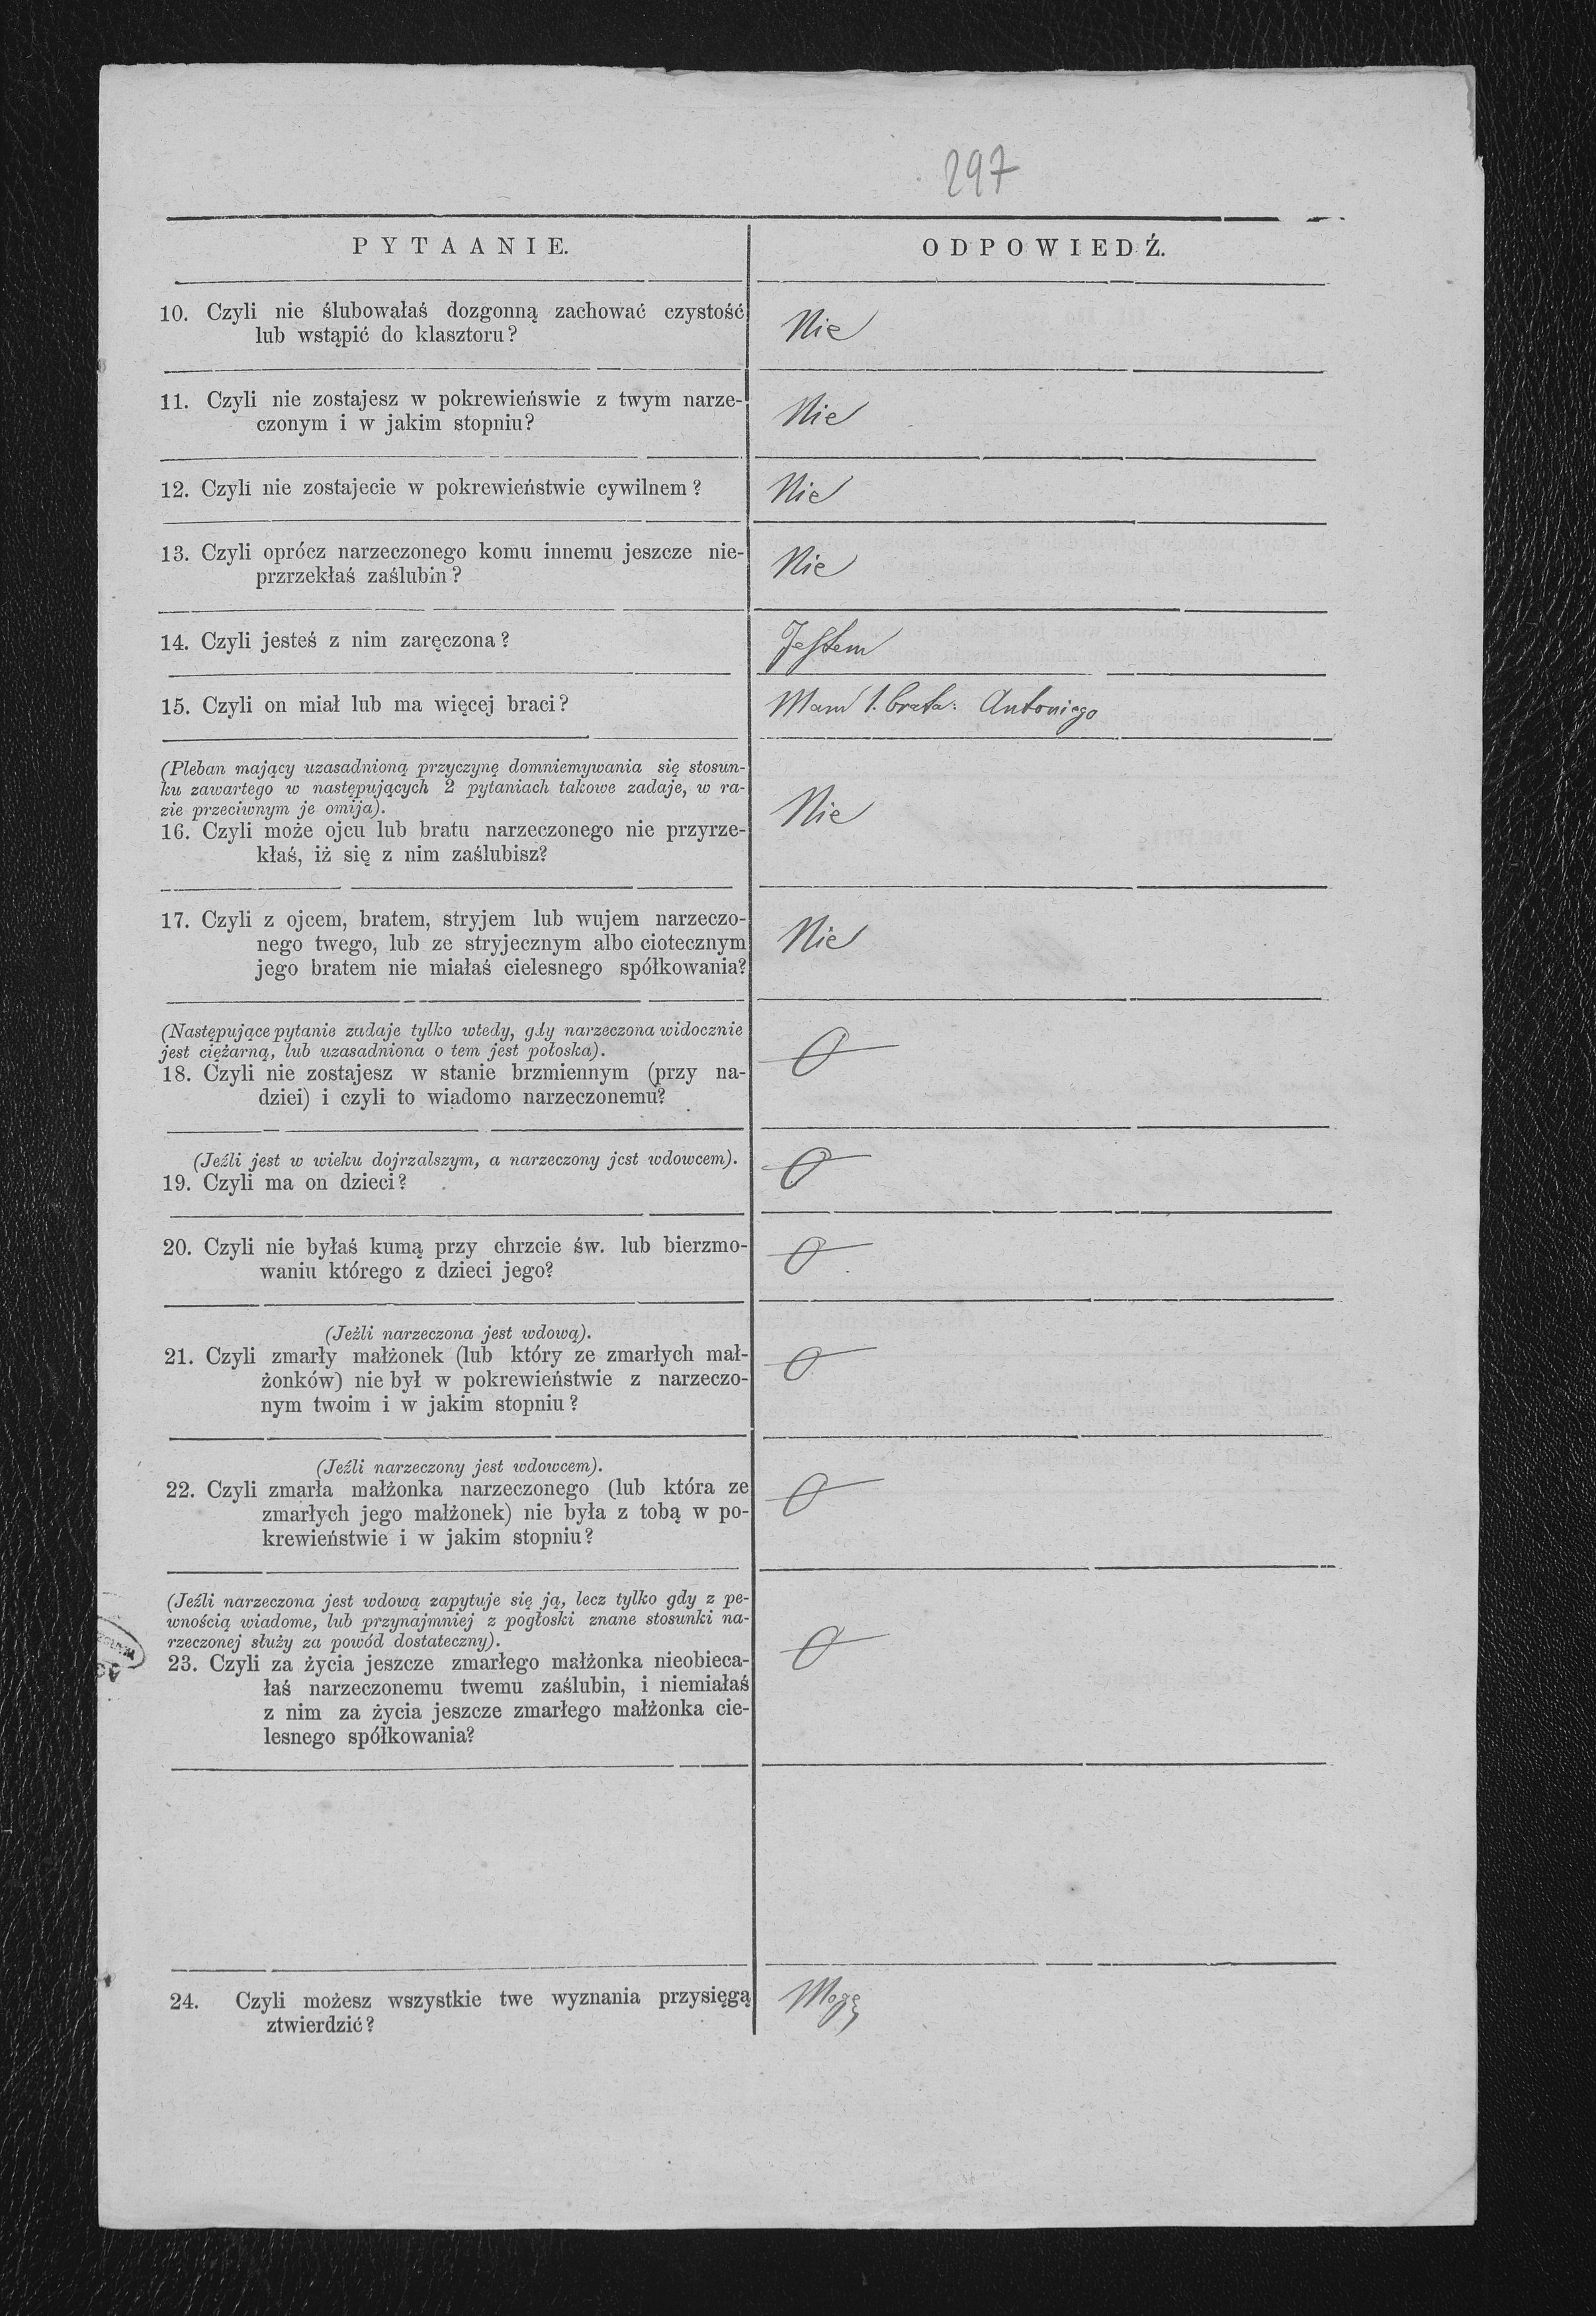 297
PYTAANIE.
ODPOWIEDŹ.
10. Czyli nie ślubowałaś dozgonną zachować czystość
lub wstąpić do klasztoru?
Nie
11. Czyli nie zostajesz w pokrewieńswie z twym narze-
czonym i w jakim stopniu?
Nie
12. Czyli nie zostajecie w pokrewieństwie cywilnem?
Nie
13. Czyli oprócz narzeczonego komu innemu jeszcze nie-
przrzekłaś zaślubin?
Nie
14. Czyli jesteś z nim zaręczona?
Jestem
15. Czyli on miał lub ma więcej braci?
Mam 1. brata: Antoniego
(Pleban mający uzasadnioną przyczynę domniemywania się stosun-
ku zawartego w następujących 2 pytaniach takowe zadaje, w ra-
zie przeciwnym je omija).
16. Czyli może ojcu lub bratu narzeczonego nie przyrze-
kłaś, iż się z nim zaślubisz?
Nie
17. Czyli z ojcem, bratem, stryjem lub wujem narzeczo-
nego twego, lub ze stryjecznym albo ciotecznym
jego bratem nie miałaś cielesnego spółkowania?
Nie
(Następujące pytanie zadaje tylko wtedy, gdy narzeczona widocznie
jest ciężarną, lub uzasadniona o tem jest połoska).
18. Czyli nie zostajesz w stanie brzmiennym (przy na-
dziei) i czyli to wiadomo narzeczonemu?
0
(Jeźli jest w wieku dojrzalszym, a narzeczony jest wdowcem).
19. Czyli ma on dzieci?
0
20. Czyli nie byłaś kumą przy chrzcie św. lub bierzmo-
waniu którego z dzieci jego?
0
(Jeźli narzeczona jest wdową).
21. Czyli zmarły małżonek (lub który ze zmarłych mał-
żonków) nie był w pokrewieństwie z narzeczo-
nym twoim i w jakim stopniu?
0
(Jeźli narzeczony jest wdowcem).
22. Czyli zmarła małżonka narzeczonego (lub która ze
zmarłych jego małżonek) nie była z tobą w po-
krewieństwie i w jakim stopniu?
0
(Jeźli narzeczona jest wdową zapytuje się ją, lecz tylko gdy z pe-
wnością wiadome, lub przynajmniej z pogłoski znane stosunki na-
rzeczonej służy za powód dostateczny).
23. Czyli za życia jeszcze zmarłego małżonka nieobieca-
łaś narzeczonemu twemu zaślubin, i niemiałaś
z nim za życia jeszcze zmarłego małżonka cie-
lesnego spółkowania?
0
24. Czyli możesz wszystkie twe wyznania przysięgą
ztwierdzić?
Mogę